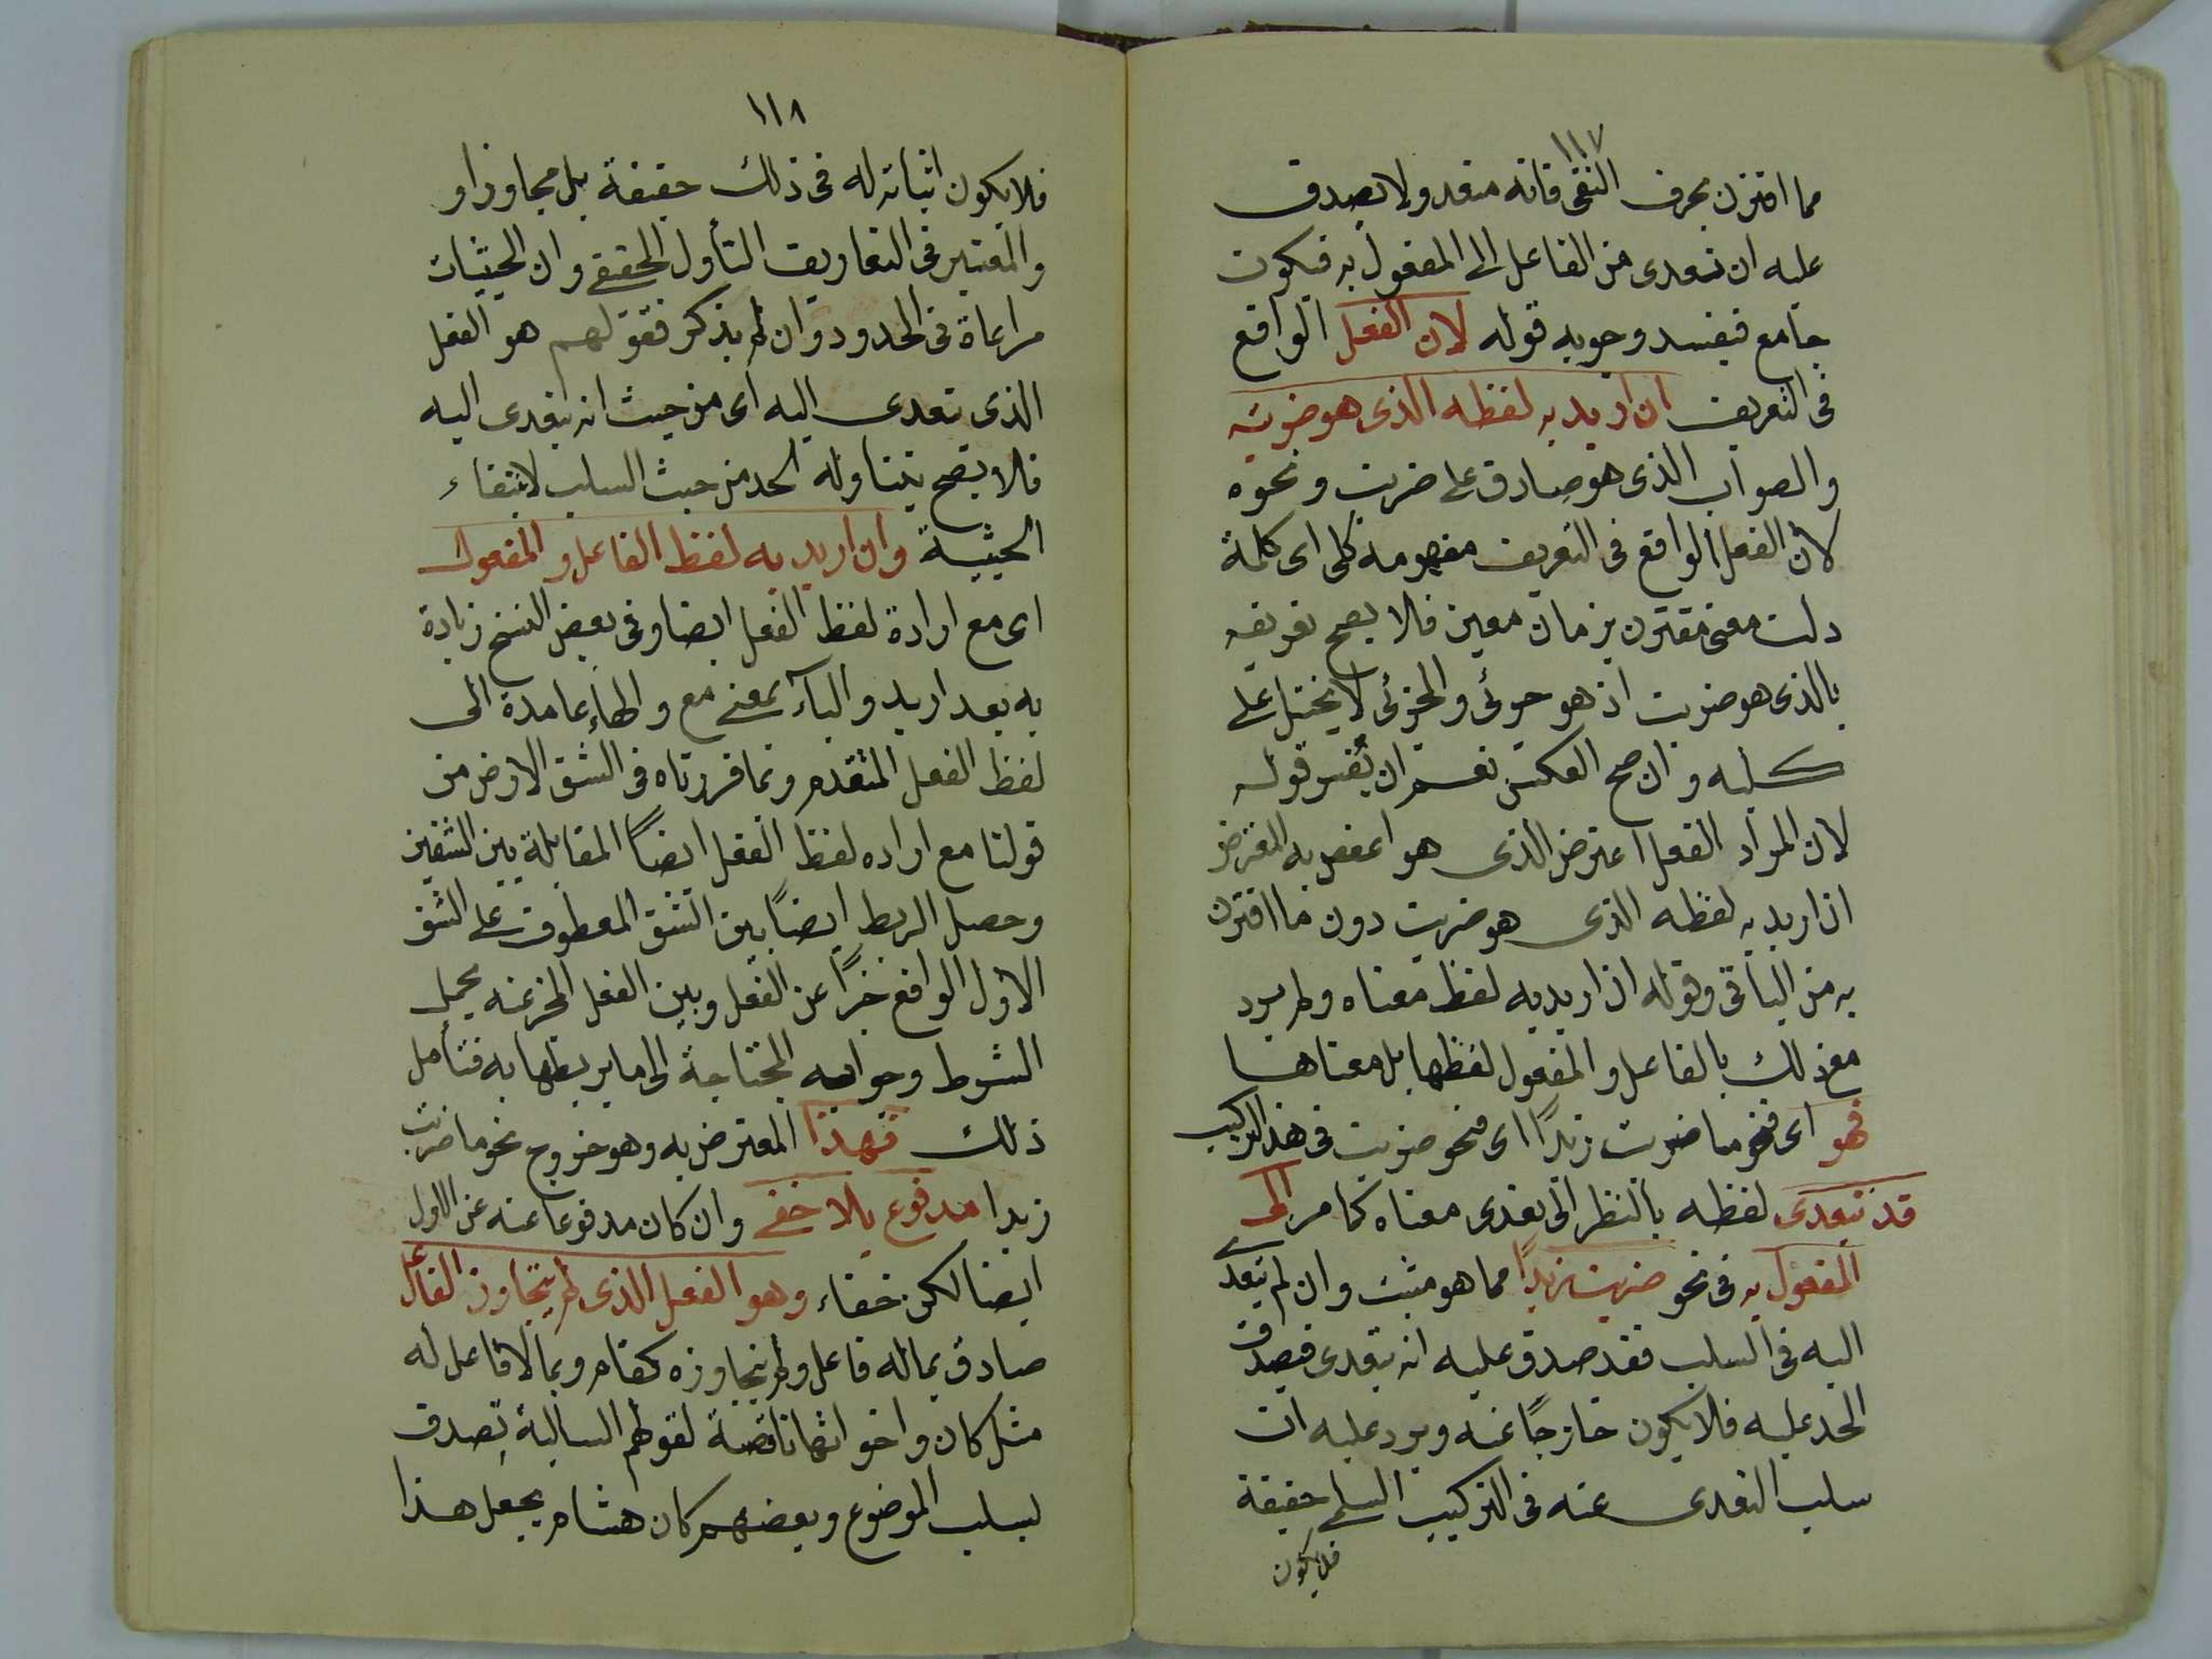 ١١٧
مما اقترن بحرف النفى فانه متعد ولا يصدق
عليه ان تعدى من الفاعل الى المفعول به فيكون
جامع فيفسد وجوبه قوله لان الفعل الواقع
فى التعريف ان اريد به لفظه الذى هو ضربت
والصواب الذى هو صادق على ضربت ونحوه
لان الفعل الواقع فى التعريف مفهومه كلى اى كلمة
دلت معنى مقترن بزمان معين فلا يصح تعريفه
بالذى هو ضربت اذ هو جزئى والجزئى لا يحمل على
كليه وان صح العكس نعم ان يفسر قوله
لان المراد الفعل اعترض الذى هو المعترض
اذ اريد به لفظه الذى هو ضربت دون ما اقترن
به من الباقى وقوله اذ اريد به لفظ معناه ولم يرد
مع ذلك بالفاعل والمفعول لفظهما بل معناهما
فهو اى فنحو ما ضربت زيدًا اى فنحو ضربت فى هذا التركيب
قد تعدى لفظه بالنظر الى تعدى معناه كما مر الى
المفعول به فى نحو ضربت زيدًا مما هو مثبت وان لم يتعد
اليه فى السلب فقد صدق عليه انه يتعدى فيصدق
الحد عليه فلا يكون خارجًا عنه ويرد عليه ان
سلب التعدى عنه فى التركيب السلبى حقيقة
فلا يكون
١١٨
فلا يكون اثباته له فى ذلك حقيقة بل مجاوزا و
والمعتبر فى التعاريف التأول الحقيقى وان الحيثيات
مراعاة فى الحدود وان لم يذكر فقولهم هو الفعل
الذى تعدى اليه اى من حيث انه يتعدى اليه
فلا يصح يتناوله الحد من حيث السلب لانتفاء
الحيثية وان اريد به لفظ الفاعل والمفعول
اى مع ارادة لفظ الفعل ايضا وفى بعض النسخ زيادة
به بعد اريد والباء بمعنى مع والهاء عامدة الى
لفظ الفعل المتقدم وبما قررناه فى الشق الارض من
قولنا مع اراده لفظ الفعل ايضًا المقابلة بين الشقين
وحصل الربط ايضًا بين الشق المعطوف على الشق
الاول الواقع خبرًا عن الفعل وبين الفعل المخبر عنه بجمل
الشرط وجوابه المحتاجة الى ما يربطها به فتأمل
ذلك فهذا المعترض به وهو خروج نحو ما ضربت
زيدا مدفوع بلا خفى وان كان مدفوعا عنه عن الاول
ايضا لكن خفاء وهو الفعل الذى لم يتجاوز الفاعل
صادق بماله فاعل ولم يتجاوزه كقام وبما لا فاعل له
مثل كان واخواتها ناقصة لقولهم السالبة تصدق
بسلب الموضوع وبعضهم كان هشام يجعل هذا